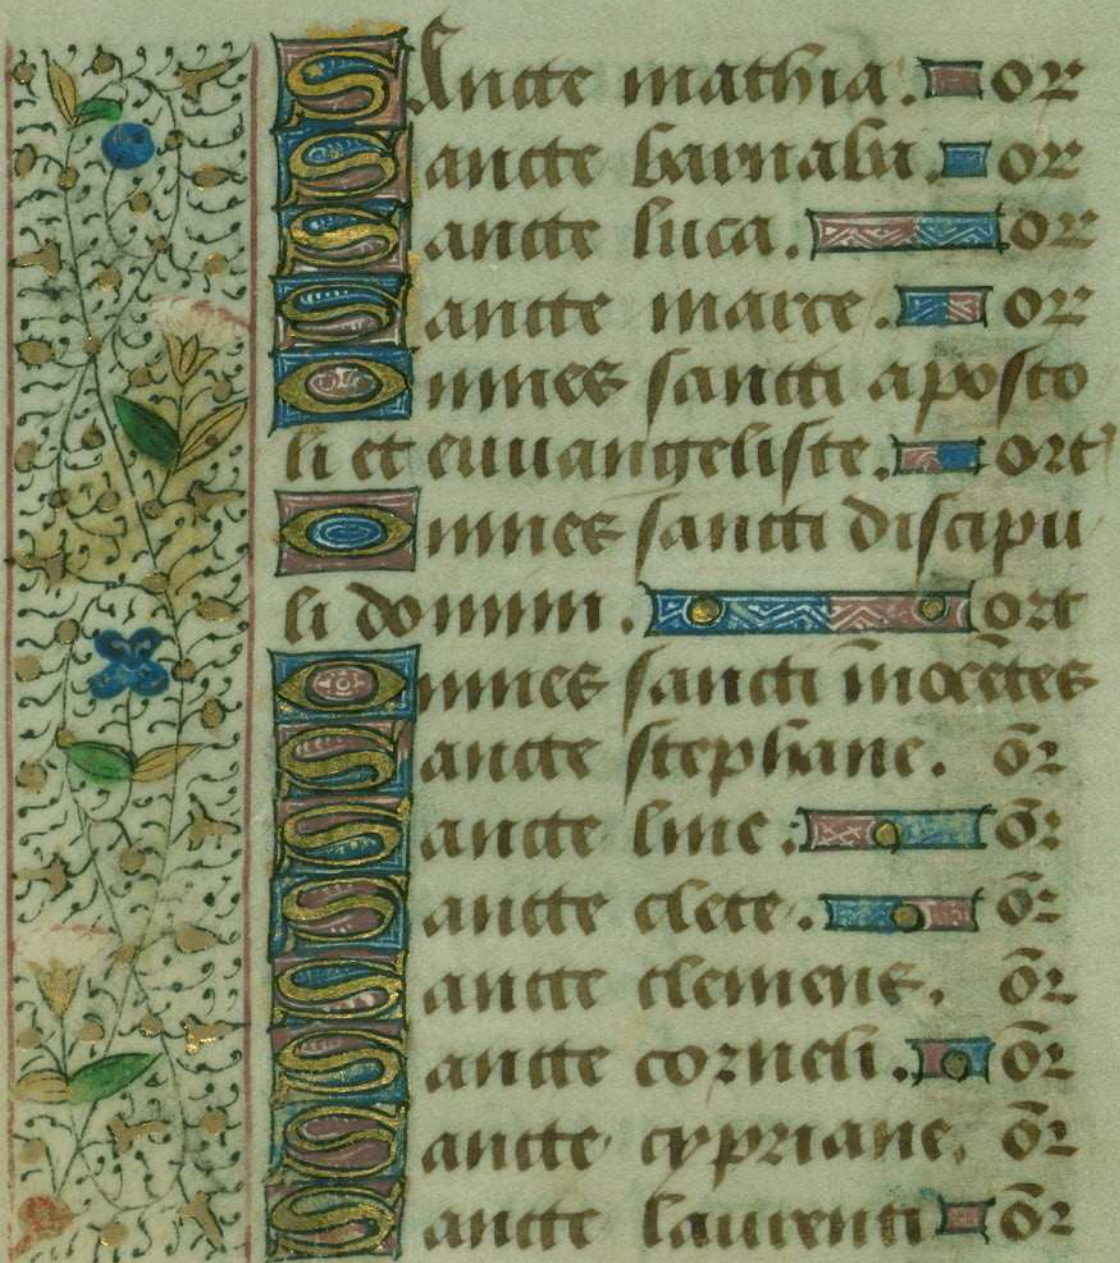 SAncte mathia. or
Sancte barnaba. or
Sancte luca. or
Sancte marce. or
Omnes sancti aposto
li et euuangeliste. ort
Omnes sancti discipu
li domini. ort
Omnes sancti īnocētes
Sancte stephane. ōr
Sancte line: ōr
Sancte clete. ōr
Sancte clemens. ōr
Sancte corneli. ōr
Sancte cypriane. ōr
Sancte laurenti ōr